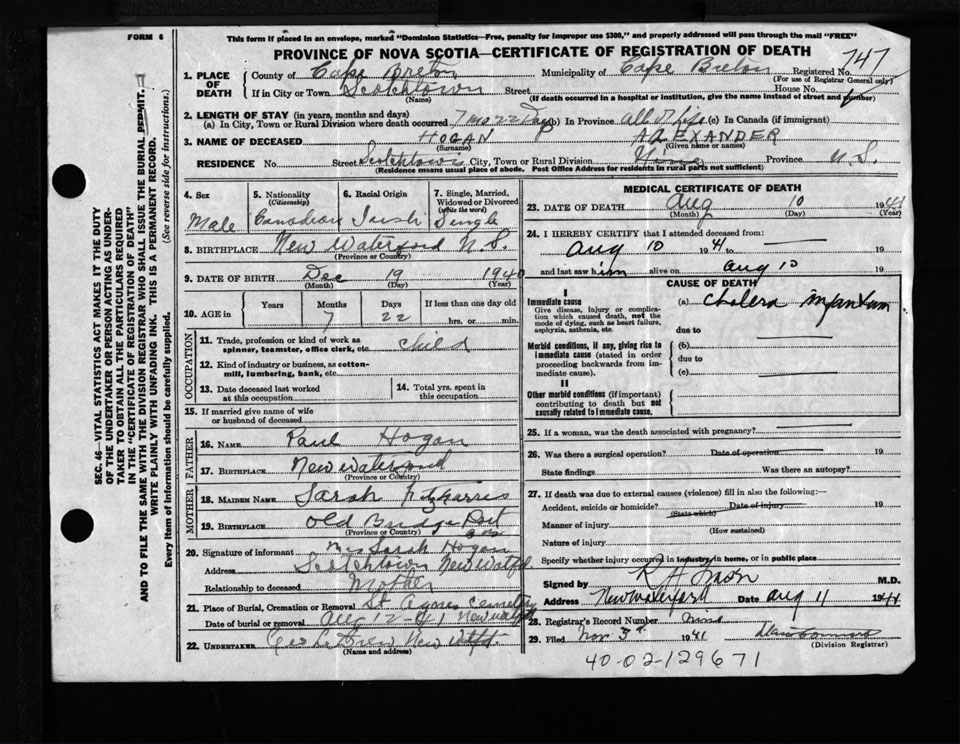 FORM 6
This form if placed in an envelope, marked "Dominion Statistics—Free, penalty for improper use $300," and properly addressed will pass through the mail "FREE"
PROVINCE OF NOVA SCOTIA—CERTIFICATE OF REGISTRATION OF DEATH
SEC. 46—VITAL STATISTICS ACT MAKES IT THE DUTY
OF THE UNDERTAKER OR PERSON ACTING AS UNDER-
TAKER TO OBTAIN ALL THE PARTICULARS REQUIRED
IN THE "CERTIFICATE OF REGISTRATION OF DEATH"
AND TO FILE THE SAME WITH THE DIVISION REGISTRAR WHO SHALL ISSUE THE BURIAL PERMIT.
WRITE PLAINLY WITH UNFADING INK. THIS IS A PERMANENT RECORD.
Every Item of Information should be carefully supplied. (See reverse side for instructions.)
1. PLACE OF DEATH
County of Cape Breton Municipality of Cape Breton Registered No. 747
(For use of Registrar General only)
If in City or Town Scotchtown Street House No.
(Name) (If death occurred in a hospital or institution, give the name instead of street and number)
2. LENGTH OF STAY (in years, months and days)
(a) In City, Town or Rural Division where death occurred 7 mo 22 Days (b) In Province All of Life (c) In Canada (if immigrant)
3. NAME OF DECEASED HOGAN ALEXANDER
(Surname) (Given name or names)
RESIDENCE No. Street Scotchtown City, Town or Rural Division Province N. S.
(Residence means usual place of abode. Post Office Address for residents in rural parts not sufficient)
4. Sex
Male
5. Nationality
(Citizenship)
Canadian
6. Racial Origin
Irish
7. Single, Married,
Widowed or Divorced
(write the word)
Single
8. BIRTHPLACE New Waterford N. S.
(Province or Country)
9. DATE OF BIRTH Dec 19 1940
(Month) (Day) (Year)
10. AGE in
Years Months Days If less than one day old
7 22 hrs. or min.
OCCUPATION
11. Trade, profession or kind of work as
spinner, teamster, office clerk, etc. child
12. Kind of industry or business, as cotton-
mill, lumbering, bank, etc.
13. Date deceased last worked
at this occupation
14. Total yrs. spent in
this occupation
15. If married give name of wife
or husband of deceased
FATHER
16. NAME Paul Hogan
17. BIRTHPLACE New Waterford
(Province or Country)
MOTHER
18. MAIDEN NAME Sarah
19. BIRTHPLACE Old Bridgeport
(Province or Country)
20. Signature of informant Mrs Sarah Hogan
Address Scotchtown New Watfd
Relationship to deceased Mother
21. Place of Burial, Cremation or Removal St Agnes Cemetery
Date of burial or removal Aug 12-41 New Watfd
22. UNDERTAKER New Watfd.
(Name and address)
MEDICAL CERTIFICATE OF DEATH
23. DATE OF DEATH Aug 10 1941
(Month) (Day) (Year)
24. I HEREBY CERTIFY that I attended deceased from:
Aug 10 1941 to 19
and last saw him alive on Aug 10 19
CAUSE OF DEATH
I
Immediate cause
Give disease, injury or complica-
tion which caused death, not the
mode of dying, such as heart failure,
asphyxia, asthenia, etc.
(a) Cholera Infantum
due to
Morbid conditions, if any, giving rise to
immediate cause (stated in order
proceeding backwards from im-
mediate cause).
(b)
due to
(c)
II
Other morbid conditions (if important)
contributing to death but not
causally related to immediate cause.
25. If a woman, was the death associated with pregnancy?
26. Was there a surgical operation? Date of operation 19
State findings Was there an autopsy?
27. If death was due to external causes (violence) fill in also the following:—
Accident, suicide or homicide? Date of injury 19
(State which)
Manner of injury
(How sustained)
Nature of injury
Specify whether injury occurred in industry, in home, or in public place
Signed by M.D.
Address New Waterford Date Aug 11 1941
28. Registrar's Record Number
29. Filed Nov 3rd 1941
(Division Registrar)
40-02-129671